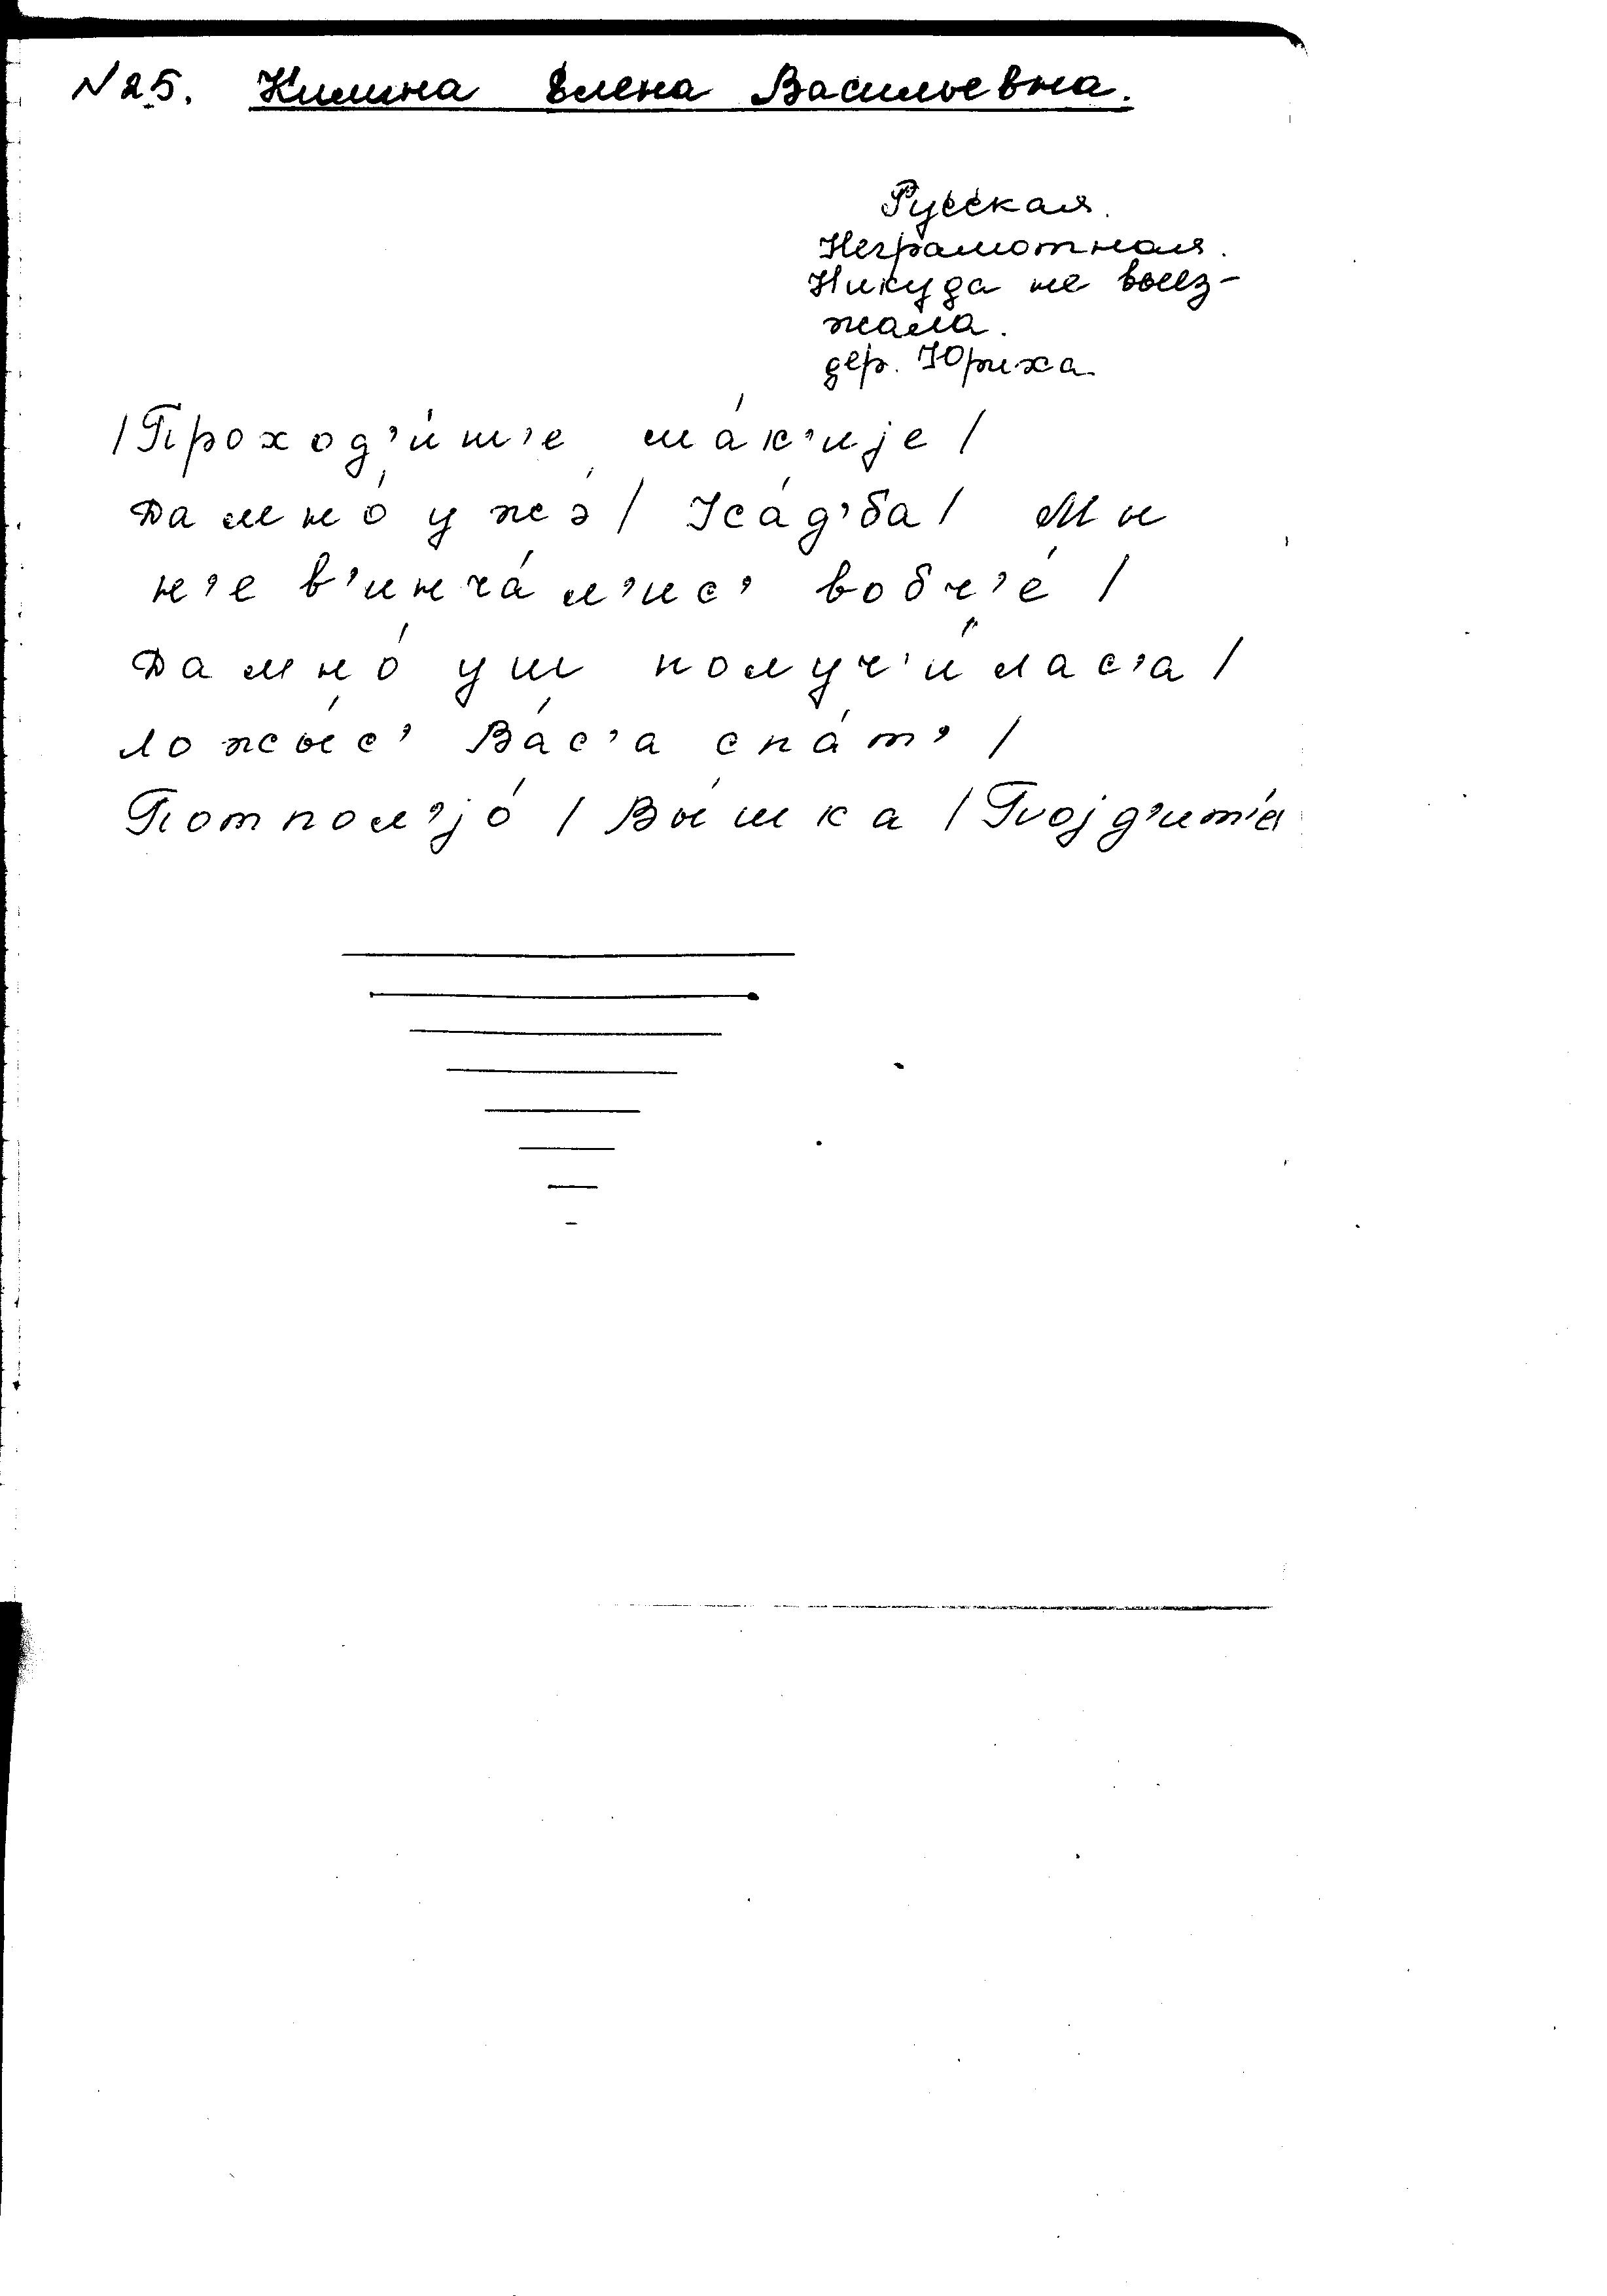 N 25. Килина Елена Васильевна.
Русская.
Неграмотная.
Никуда не выез-
жала.
дер. Юриха
/Проход’и́т’е та́к’иjе/
Дамно́ ужэ́/ Уса́д’ба/ Мы
н’е в’инча́л’ис’ вобч’е́/
Дамно́ уш получ’и́лас’а/
ложы́с’ Ва́с’а спа́т’/
Потпол’jо́/ Вы́шка/ Поjд’ит’е́/